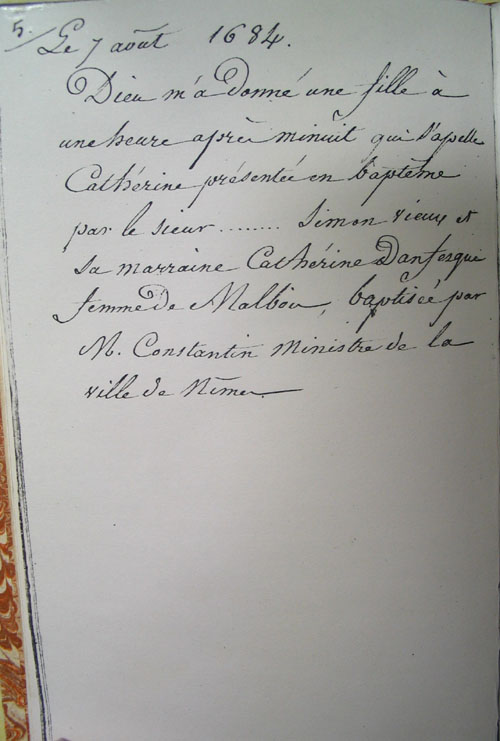 5.
Le 7 août 1684.
Dieu m'a donné une fille à
une heure après minuit qui s'apelle
Cathérine présentée en baptême
par le sieur ........ Simon Vieux et
sa marraine Cathérine Danfesque
femme de Malbou, baptisée par
M. Constantin ministre de la
ville de Nîmes